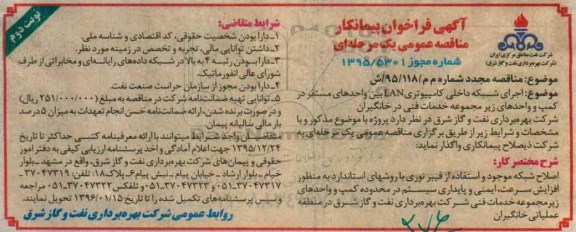 نوبت دوم
آگهی فراخوان پیمانکار
مناقصه عمومی یک مرحله‌ای
شماره مجوز ۱۳۹۵/۵۳۰۱
شرکت نفت مناطق مرکزی ایران
شرکت بهره‌برداری نفت و گاز شرق
موضوع: مناقصه مجدد شماره م م/۹۵/۱۱۸/ش
موضوع: اجرای شبکه داخلی کامپیوتری LAN بین واحدهای مستقر در
کمپ و واحدهای زیر مجموعه خدمات فنی در خانگیران
شرکت بهره‌برداری نفت و گاز شرق در نظر دارد پروژه با موضوع مذکور و با
مشخصات و شرایط زیر از طریق برگزاری مناقصه عمومی یک مرحله‌ای به
شرکت ذیصلاح پیمانکاری واگذار نماید:
شرح مختصر کار:
اصلاح شبکه موجود و استفاده از فیبر نوری با روشهای استاندارد به منظور
افزایش سرعت، ایمنی و پایداری سیستم در محدوده کمپ و واحدهای
زیرمجموعه خدمات فنی شرکت بهره‌برداری نفت و گاز شرق در منطقه
عملیاتی خانگیران
شرایط متقاضی:
۱ـ دارا بودن شخصیت حقوقی، کد اقتصادی و شناسه ملی.
۲ـ داشتن توانایی مالی، تجربه و تخصص در زمینه مورد نظر.
۳ـ دارا بودن رتبه ۴ به بالا در شبکه داده‌های رایانه‌ای و مخابراتی از طرف
شورای عالی انفورماتیک.
۴ـ دارا بودن مجوز از سازمان حراست صنعت نفت.
۵ـ توانایی تهیه ضمانت‌نامه شرکت در مناقصه به مبلغ (۲۵۱/۰۰۰/۰۰۰ ریال)
و در صورت برنده شدن، ارائه ضمانت‌نامه حسن انجام تعهدات به میزان ۵ درصد
بار مالی سالیانه پیمان
متقاضیان واجد شرایط میتوانند با ارائه معرفینامه کتبی حداکثر تا تاریخ
۱۳۹۵/۱۲/۲۴ جهت اعلام آمادگی و اخذ پرسشنامه ارزیابی کیفی به دفتر امور
حقوقی و پیمان‌های شرکت بهره‌برداری نفت و گاز شرق، واقع در مشهد ـ بلوار
خیام ـ بلوار ارشاد ـ خیابان پیام ـ نبش پیام ۶ـ پلاک ۱۸، تلفن: ۳۷۰۴۷۳۱۹
۰۵۱-۳۷۰۴۷۳۱۷ و ۰۵۱-۳۷۰۴۷۳۲۳ و تلفکس ۰۵۱-۳۷۰۴۷۳۲۲ مراجعه
وسپس پرسشنامه‌های تکمیل شده را تا تاریخ ۱۳۹۶/۰۱/۱۵ تحویل نمایند.
روابط عمومی شرکت بهره‌برداری نفت و گاز شرق